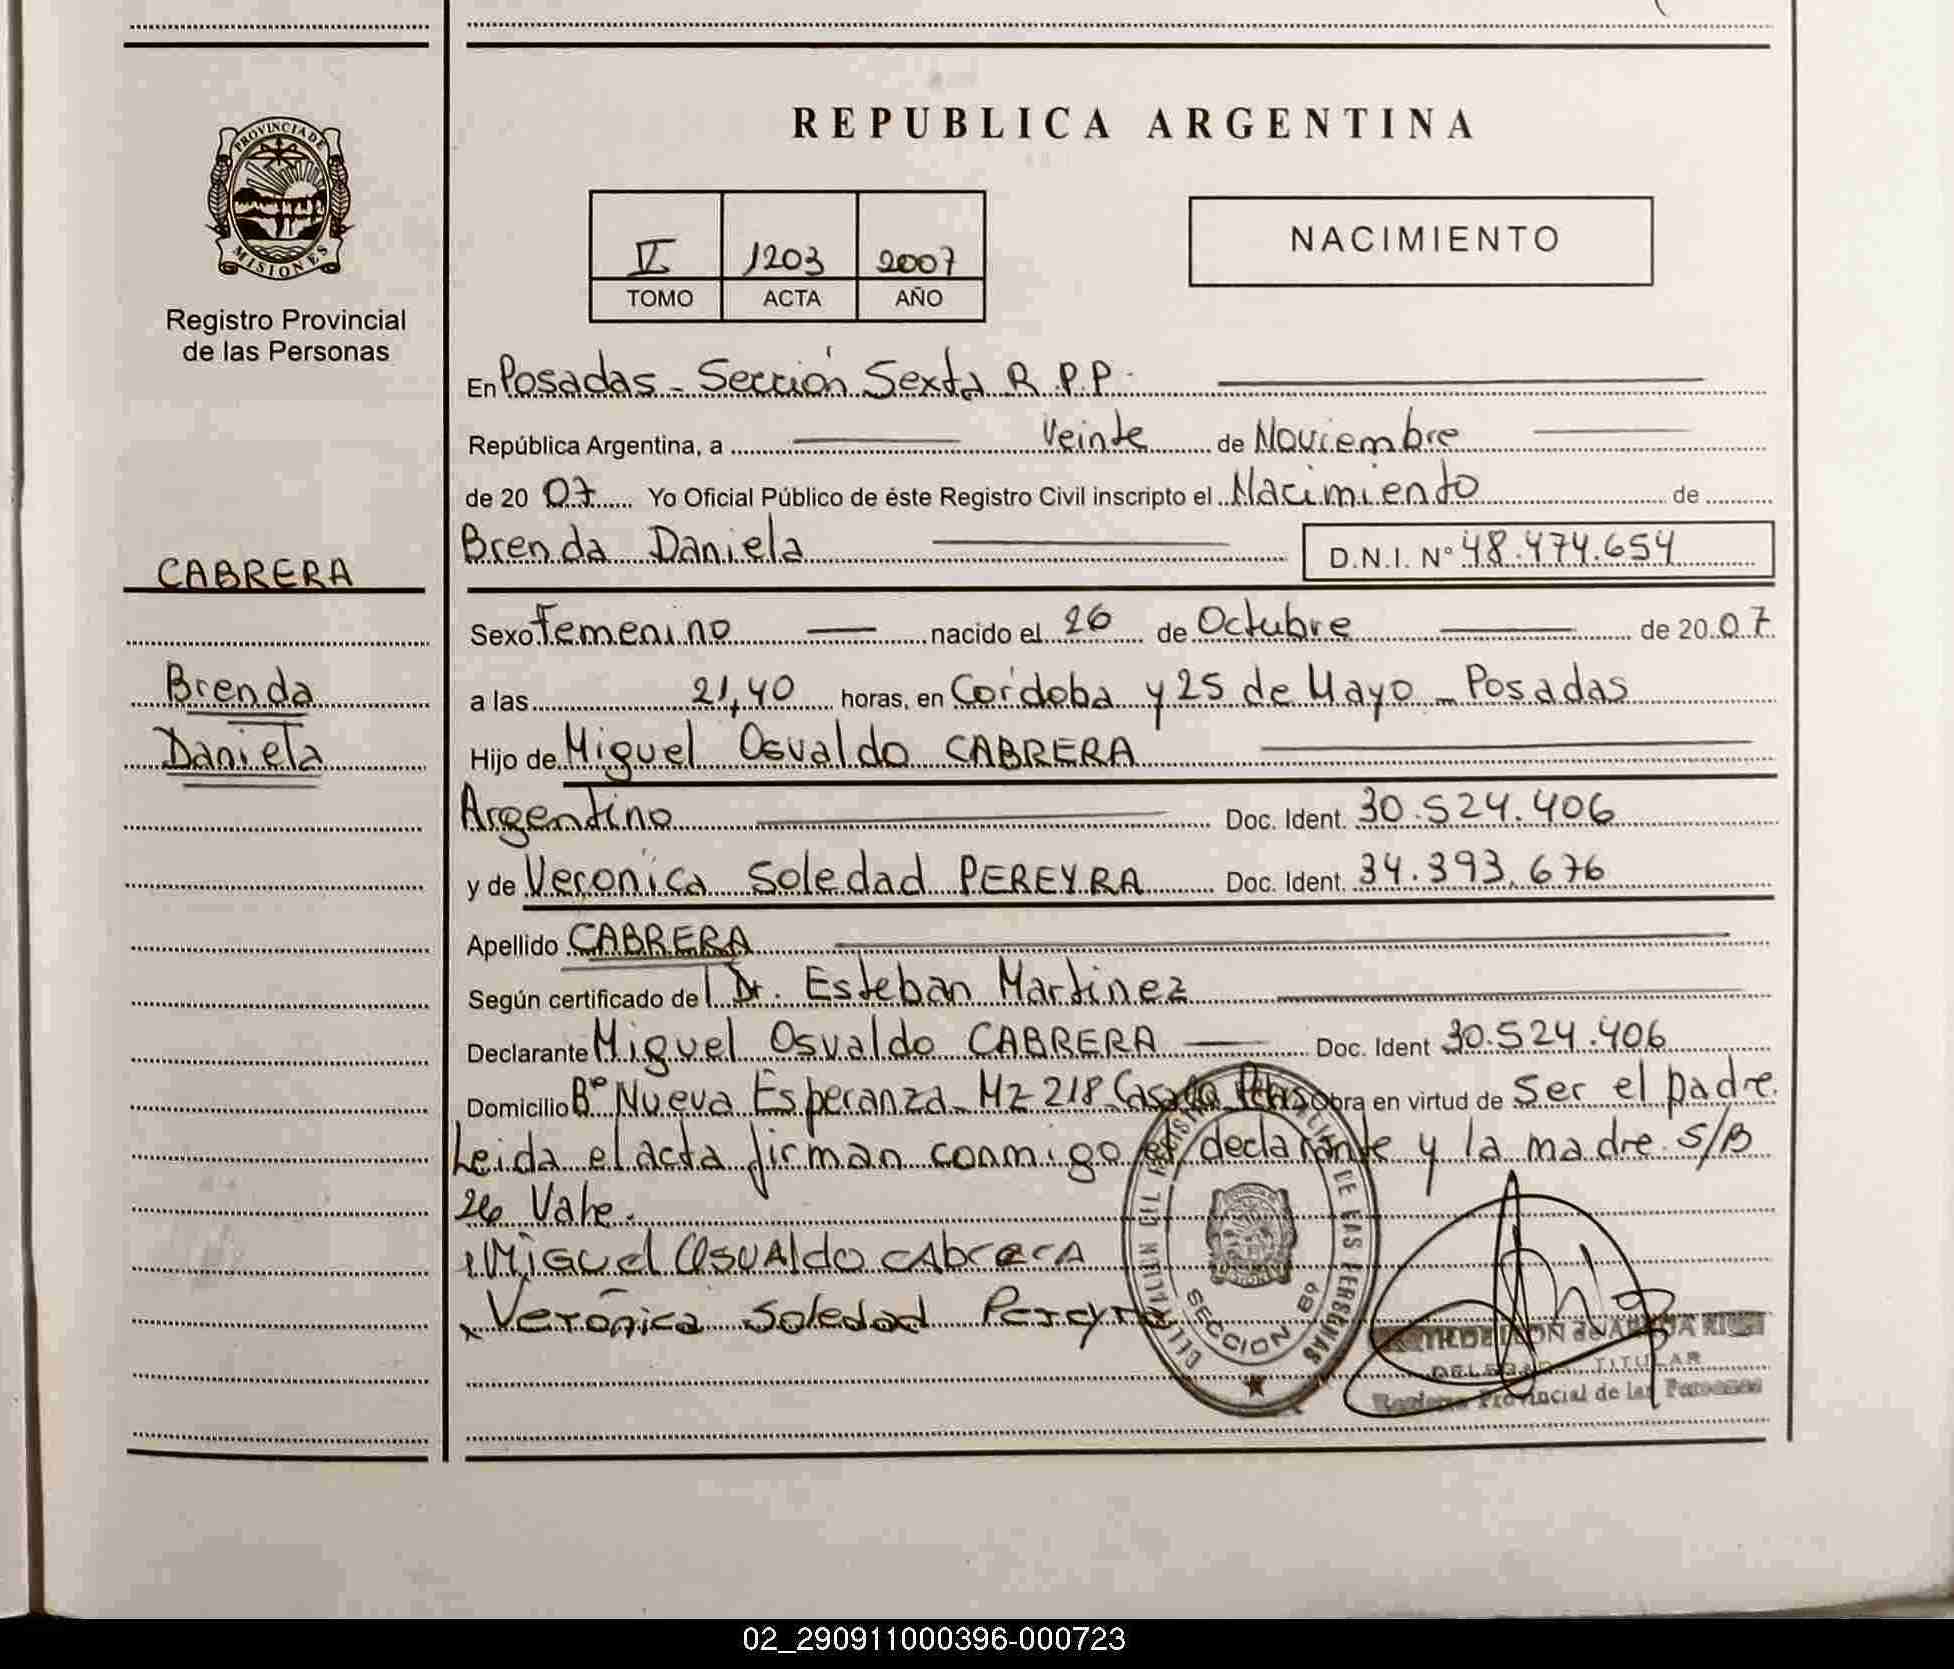 REPUBLICA ARGENTINA
PROVINCIA DE
MISIONES
Registro Provincial
de las Personas
NACIMIENTO
1203 2007
TOMO ACTA AÑO
En Posadas - Sección Sexta R.P.P.
República Argentina, a Veinte de Noviembre
de 20 07 Yo Oficial Público de éste Registro Civil inscripto el Nacimiento de
Brenda Daniela D.N.I. Nº 48.474.654
CABRERA
Brenda
Daniela
Sexo Femenino nacido el 26 de Octubre de 20 07
a las 21,40 horas, en Córdoba y 25 de Mayo - Posadas
Hijo de Miguel Osvaldo CABRERA
Argentino Doc. Ident. 30.524.406
y de Verónica Soledad PEREYRA Doc. Ident. 34.393.676
Apellido CABRERA
Según certificado de Dr. Esteban Martinez
Declarante Miguel Osvaldo CABRERA Doc. Ident 30.524.406
Domicilio Bº Nueva Esperanza - Mz 218 Obra en virtud de Ser el padre.
Leida el acta firman conmigo el declarante y la madre. S/B
26 Vale.
Miguel Osvaldo Cabrera
Verónica Soledad Pereyra
DE LAS PERSONAS
SECCION
TITULAR
Provincial de las Personas
02_290911000396-000723